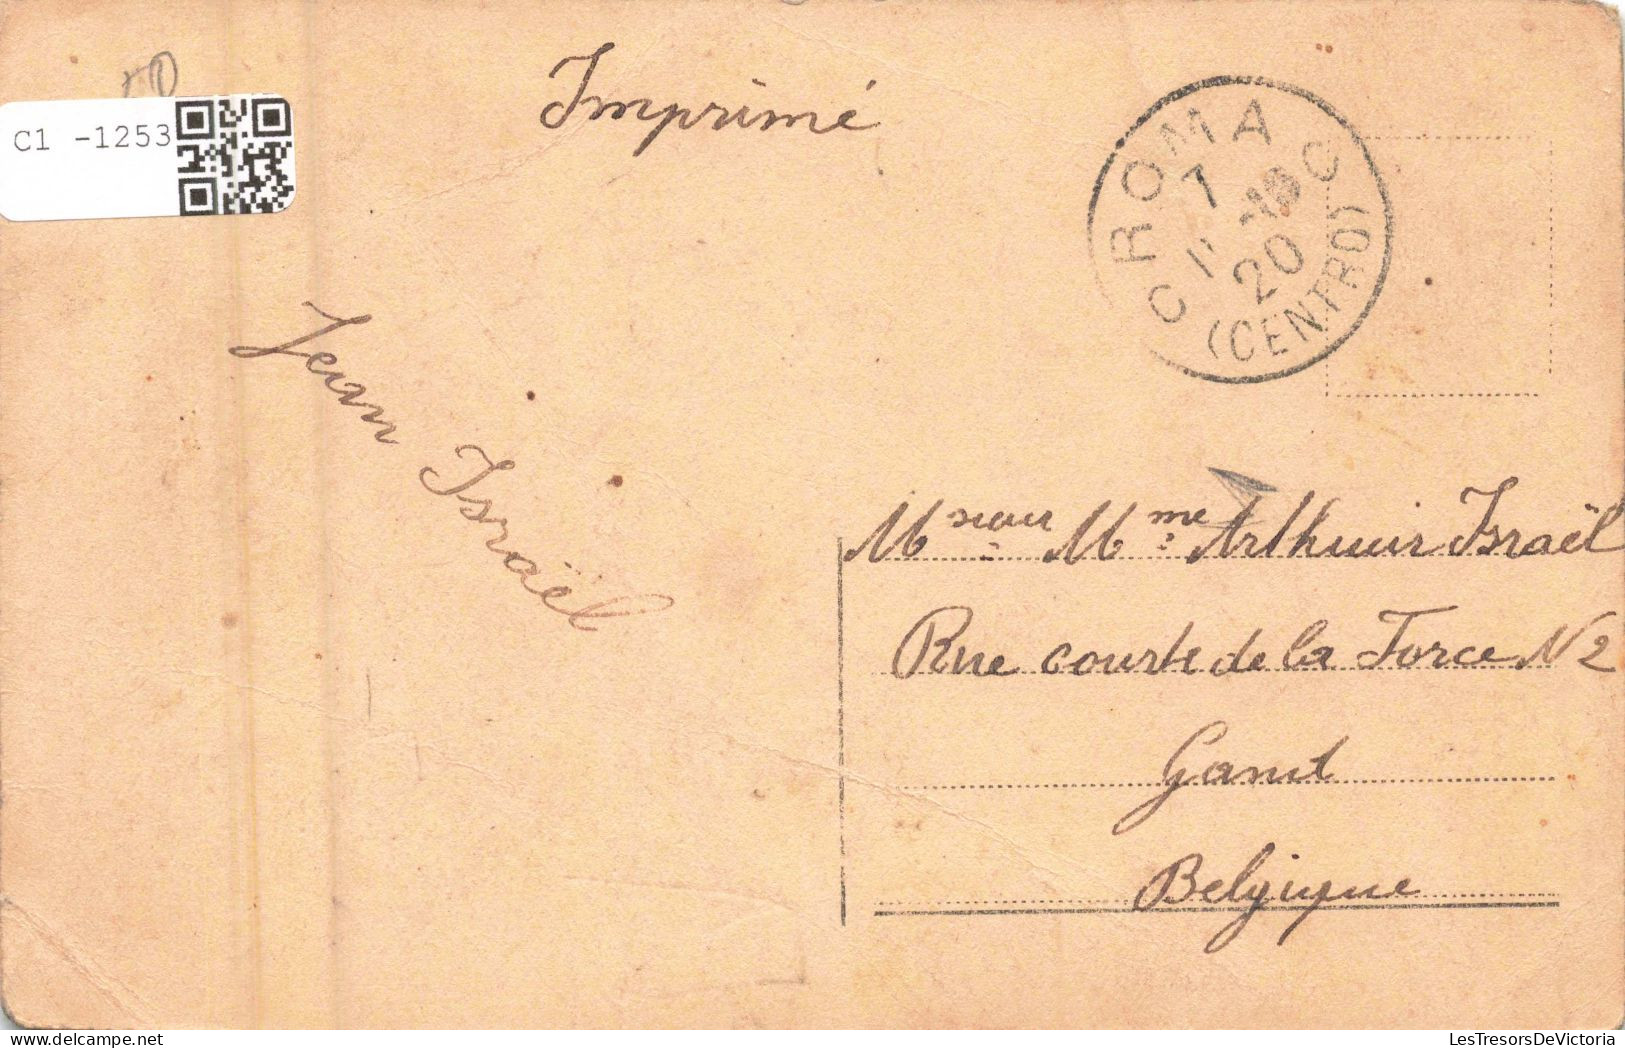 Imprimé
C1 -1253
ROMA
(CENTRO)
7
20
Jean Israël
Msieur Mme Arthuur Israël
Rue courte de la Force N 2
Gand
Belgique
LesTresorsDeVictoria